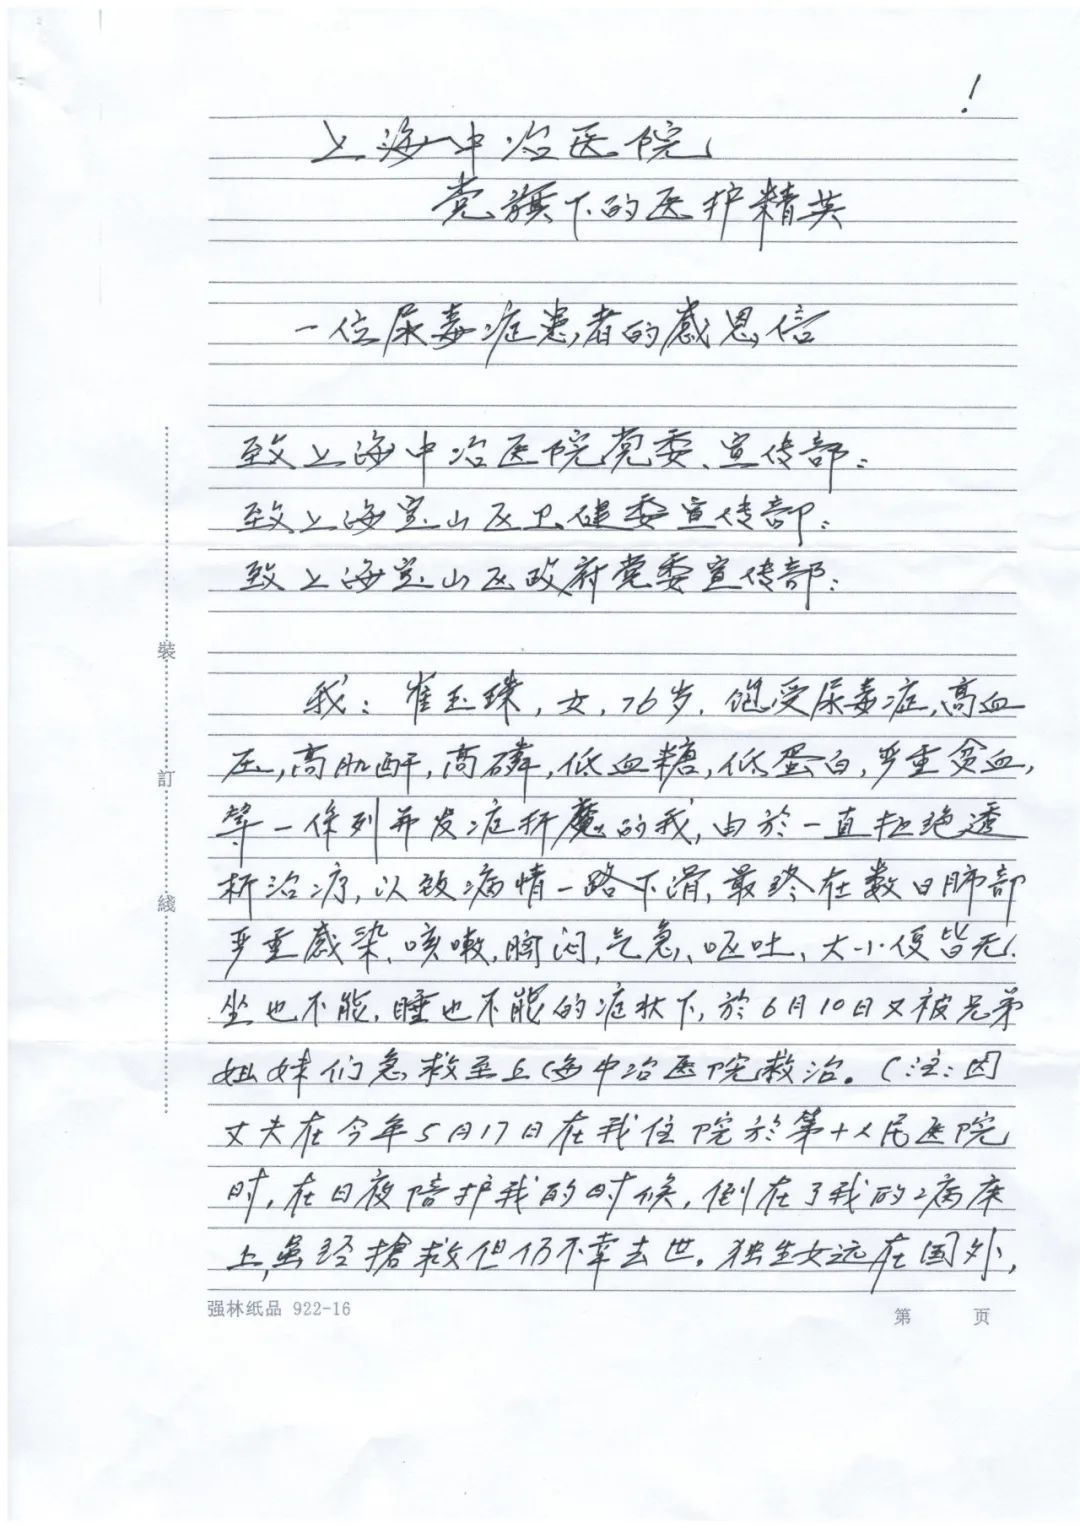 !
上海中冶医院
党旗下的医护精英
一位尿毒症患者的感恩信
致上海中冶医院党委、宣传部：
致上海宝山区卫健委宣传部：
致上海宝山区政府党委宣传部：
我：崔玉珠，女，76岁．饱受尿毒症，高血
压，高肌酐，高磷，低血糖，低蛋白，严重贫血，
等一系列并发症折魔的我，由於一直拒绝透
析治疗，以致病情一路下滑，最终在数日肺部
严重感染、咳嗽，胸闷，气急、呕吐、大小便皆无．
坐也不能，睡也不能的症状下，於6月10日又被兄弟
姐妹们急救至上海中冶医院救治。（注：因
丈夫在今年5月17日在我住院於第十人民医院
时，在日夜陪护我的时候，倒在了我的病床
上，虽经搶救但仍不幸去世．独生女远在国外，
裝
訂
綫
强林纸品 922-16
第 页